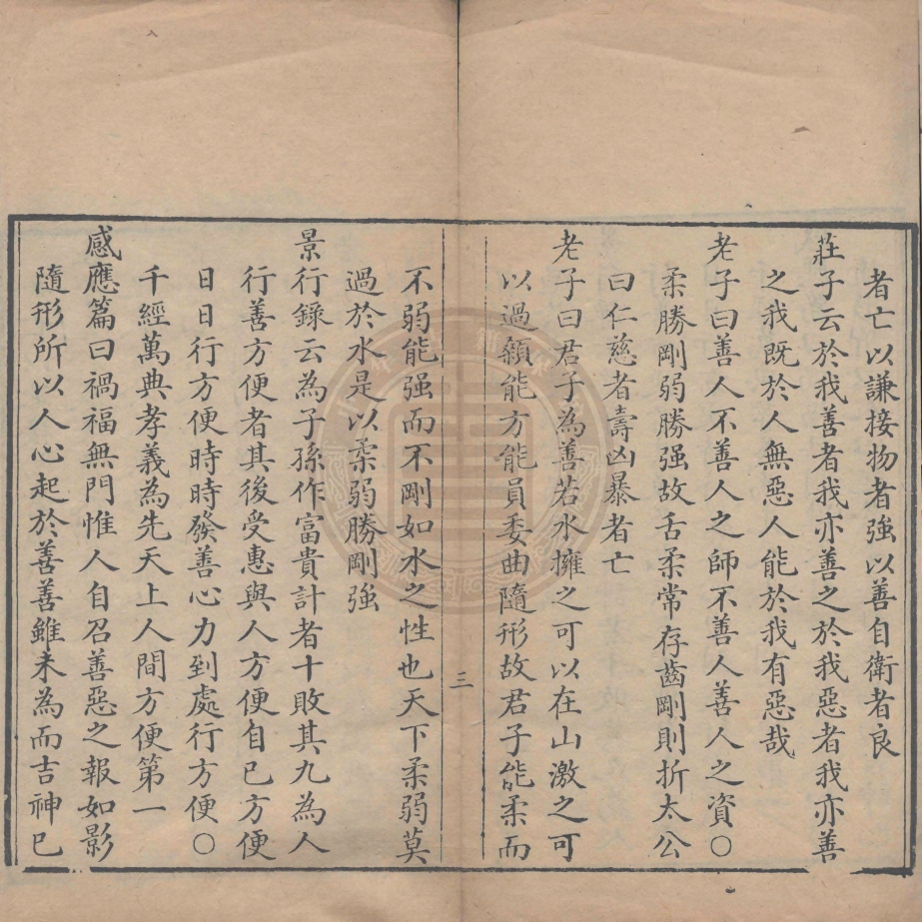 者亡以謙接物者強以善自衛者良
莊子云於我善者我亦善之於我惡者我亦善
之我既於人無惡人能於我有惡哉
老子曰善人不善人之師不善人善人之資○
柔勝剛弱勝强故舌柔常存齒剛則折太公
曰仁慈者壽凶暴者亡
老子曰君子為善若水擁之可以在山激之可
以過顙能方能員委曲隨形故君子能柔而
三
不弱能强而不剛如水之性也天下柔弱莫
過於水是以柔弱勝剛強
景行錄云為子孫作富貴計者十敗其九為人
行善方便者其後受惠與人方便自已方便
日日行方便時時發善心力到處行方便○
千經萬典孝義為先天上人間方便第一
感應篇曰禍福無門惟人自召善惡之報如影
隨形所以人心起於善善雖未為而吉神已